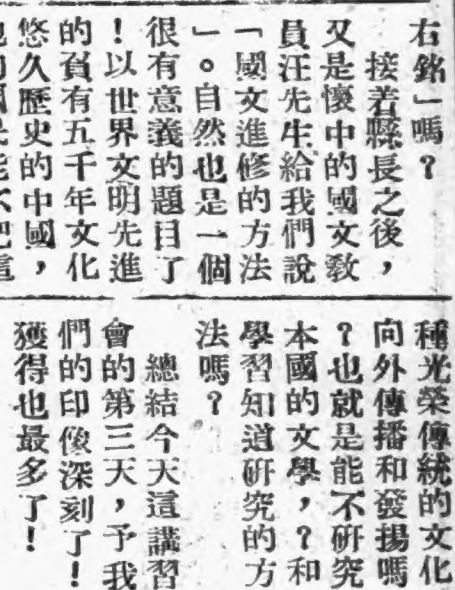 右銘」嗎？
接着縣長之後，
又是懷中的國文教
員汪先生給我們說
「國文進修的方法
」。自然也是一個
很有意義的題目了
！以世界文明先進
的負有五千年文化
悠久歷史的中國，
種光榮傳統的文化
向外傳播和發揚嗎
？也就是能不研究
本國的文學，？和
學習知道研究的方
法嗎？
總結今天這講習
會的第三天，予我
們的印像深刻了！
獲得也最多了！